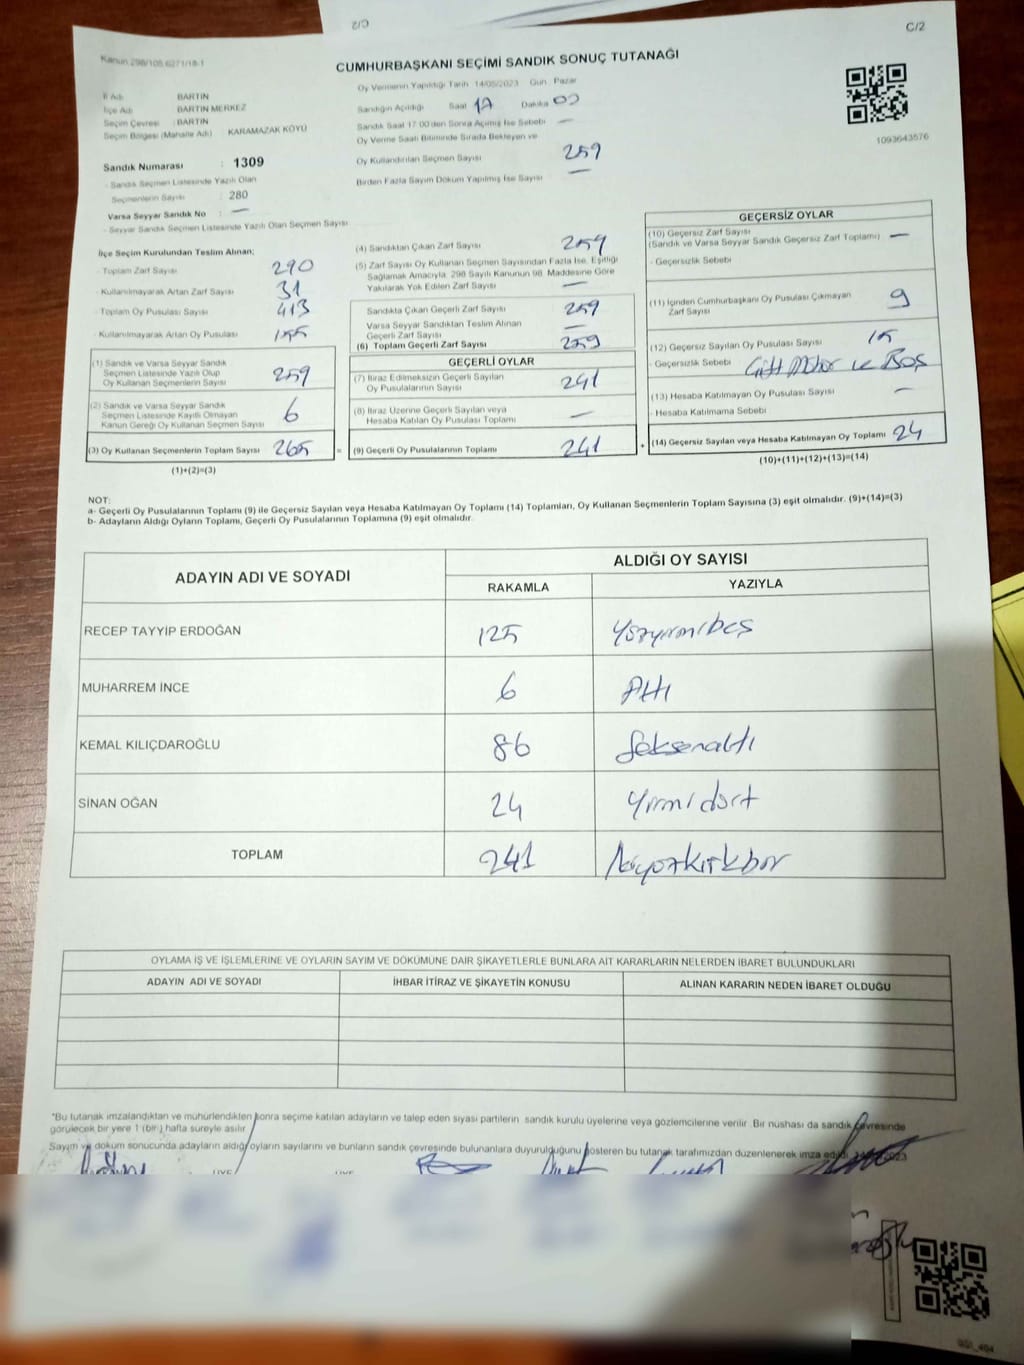 C/2
C/2
Kanun 298/105,6271/18-1
CUMHURBAŞKANI SEÇİMİ SANDIK SONUÇ TUTANAĞI
İl Adı BARTIN
İlçe Adı BARTIN MERKEZ
Seçim Çevresi : BARTIN
Seçim Bölgesi (Mahalle Adı) KARAMAZAK KÖYÜ
Sandık Numarası : 1309
- Sandık Seçmen Listesinde Yazılı Olan
Seçmenlerin Sayısı : 280
Varsa Seyyar Sandık No : —
- Seyyar Sandık Seçmen Listesinde Yazılı Olan Seçmen Sayısı
Oy Vermenin Yapıldığı Tarih 14/05/2023 Gün Pazar
Sandığın Açıldığı Saat 17 Dakika 00
Sandık Saat 17:00'den Sonra Açılmış İse Sebebi —
Oy Verme Saati Bitiminde Sırada Bekleyen ve
Oy Kullandırılan Seçmen Sayısı 259
Birden Fazla Sayım Döküm Yapılmış İse Sayısı —
1093643576
İlçe Seçim Kurulundan Teslim Alınan:
- Toplam Zarf Sayısı 290
- Kullanılmayarak Artan Zarf Sayısı 31
- Toplam Oy Pusulası Sayısı 413
- Kullanılmayarak Artan Oy Pusulası 155
(1) Sandık ve Varsa Seyyar Sandık
Seçmen Listesinde Yazılı Olup
Oy Kullanan Seçmenlerin Sayısı 259
(2) Sandık ve Varsa Seyyar Sandık
Seçmen Listesinde Kayıtlı Olmayan
Kanun Gereği Oy Kullanan Seçmen Sayısı 6
(3) Oy Kullanan Seçmenlerin Toplam Sayısı 265 =
(1)+(2)=(3)
(4) Sandıktan Çıkan Zarf Sayısı 259
(5) Zarf Sayısı Oy Kullanan Seçmen Sayısından Fazla İse, Eşitliği
Sağlamak Amacıyla, 298 Sayılı Kanunun 98. Maddesine Göre
Yakılarak Yok Edilen Zarf Sayısı —
Sandıkta Çıkan Geçerli Zarf Sayısı 259
Varsa Seyyar Sandıktan Teslim Alınan
Geçerli Zarf Sayısı —
(6) Toplam Geçerli Zarf Sayısı 259
GEÇERLİ OYLAR
(7) İtiraz Edilmeksizin Geçerli Sayılan
Oy Pusulalarının Sayısı 241
(8) İtiraz Üzerine Geçerli Sayılan veya
Hesaba Katılan Oy Pusulası Toplamı —
(9) Geçerli Oy Pusulalarının Toplamı 241 +
GEÇERSİZ OYLAR
(10) Geçersiz Zarf Sayısı
(Sandık ve Varsa Seyyar Sandık Geçersiz Zarf Toplamı) —
- Geçersizlik Sebebi
(11) İçinden Cumhurbaşkanı Oy Pusulası Çıkmayan
Zarf Sayısı 9
(12) Geçersiz Sayılan Oy Pusulası Sayısı 15
- Geçersizlik Sebebi ve Boş
(13) Hesaba Katılmayan Oy Pusulası Sayısı —
- Hesaba Katılmama Sebebi
(14) Geçersiz Sayılan veya Hesaba Katılmayan Oy Toplamı 24
(10)+(11)+(12)+(13)=(14)
NOT:
a- Geçerli Oy Pusulalarının Toplamı (9) ile Geçersiz Sayılan veya Hesaba Katılmayan Oy Toplamı (14) Toplamları, Oy Kullanan Seçmenlerin Toplam Sayısına (3) eşit olmalıdır. (9)+(14)=(3)
b- Adayların Aldığı Oyların Toplamı, Geçerli Oy Pusulalarının Toplamına (9) eşit olmalıdır.
ADAYIN ADI VE SOYADI
ALDIĞI OY SAYISI
RAKAMLA YAZIYLA
RECEP TAYYİP ERDOĞAN 125 Yüzyirmibeş
MUHARREM İNCE 6 Altı
KEMAL KILIÇDAROĞLU 86 Seksenaltı
SİNAN OĞAN 24 Yirmidört
TOPLAM 241 İkiyüzkırkbir
OYLAMA İŞ VE İŞLEMLERİNE VE OYLARIN SAYIM VE DÖKÜMÜNE DAİR ŞİKAYETLERLE BUNLARA AİT KARARLARIN NELERDEN İBARET BULUNDUKLARI
ADAYIN ADI VE SOYADI İHBAR İTİRAZ VE ŞİKAYETİN KONUSU ALINAN KARARIN NEDEN İBARET OLDUĞU
*Bu tutanak imzalandıktan ve mühürlendikten sonra seçime katılan adayların ve talep eden siyasi partilerin sandık kurulu üyelerine veya gözlemcilerine verilir. Bir nüshası da sandık çevresinde
görülecek bir yere 1 (bir) hafta süreyle asılır.
Sayım ve döküm sonucunda adayların aldığı oyların sayılarını ve bunların sandık çevresinde bulunanlara duyurulduğunu gösteren bu tutanak tarafımızdan düzenlenerek imza edildi.